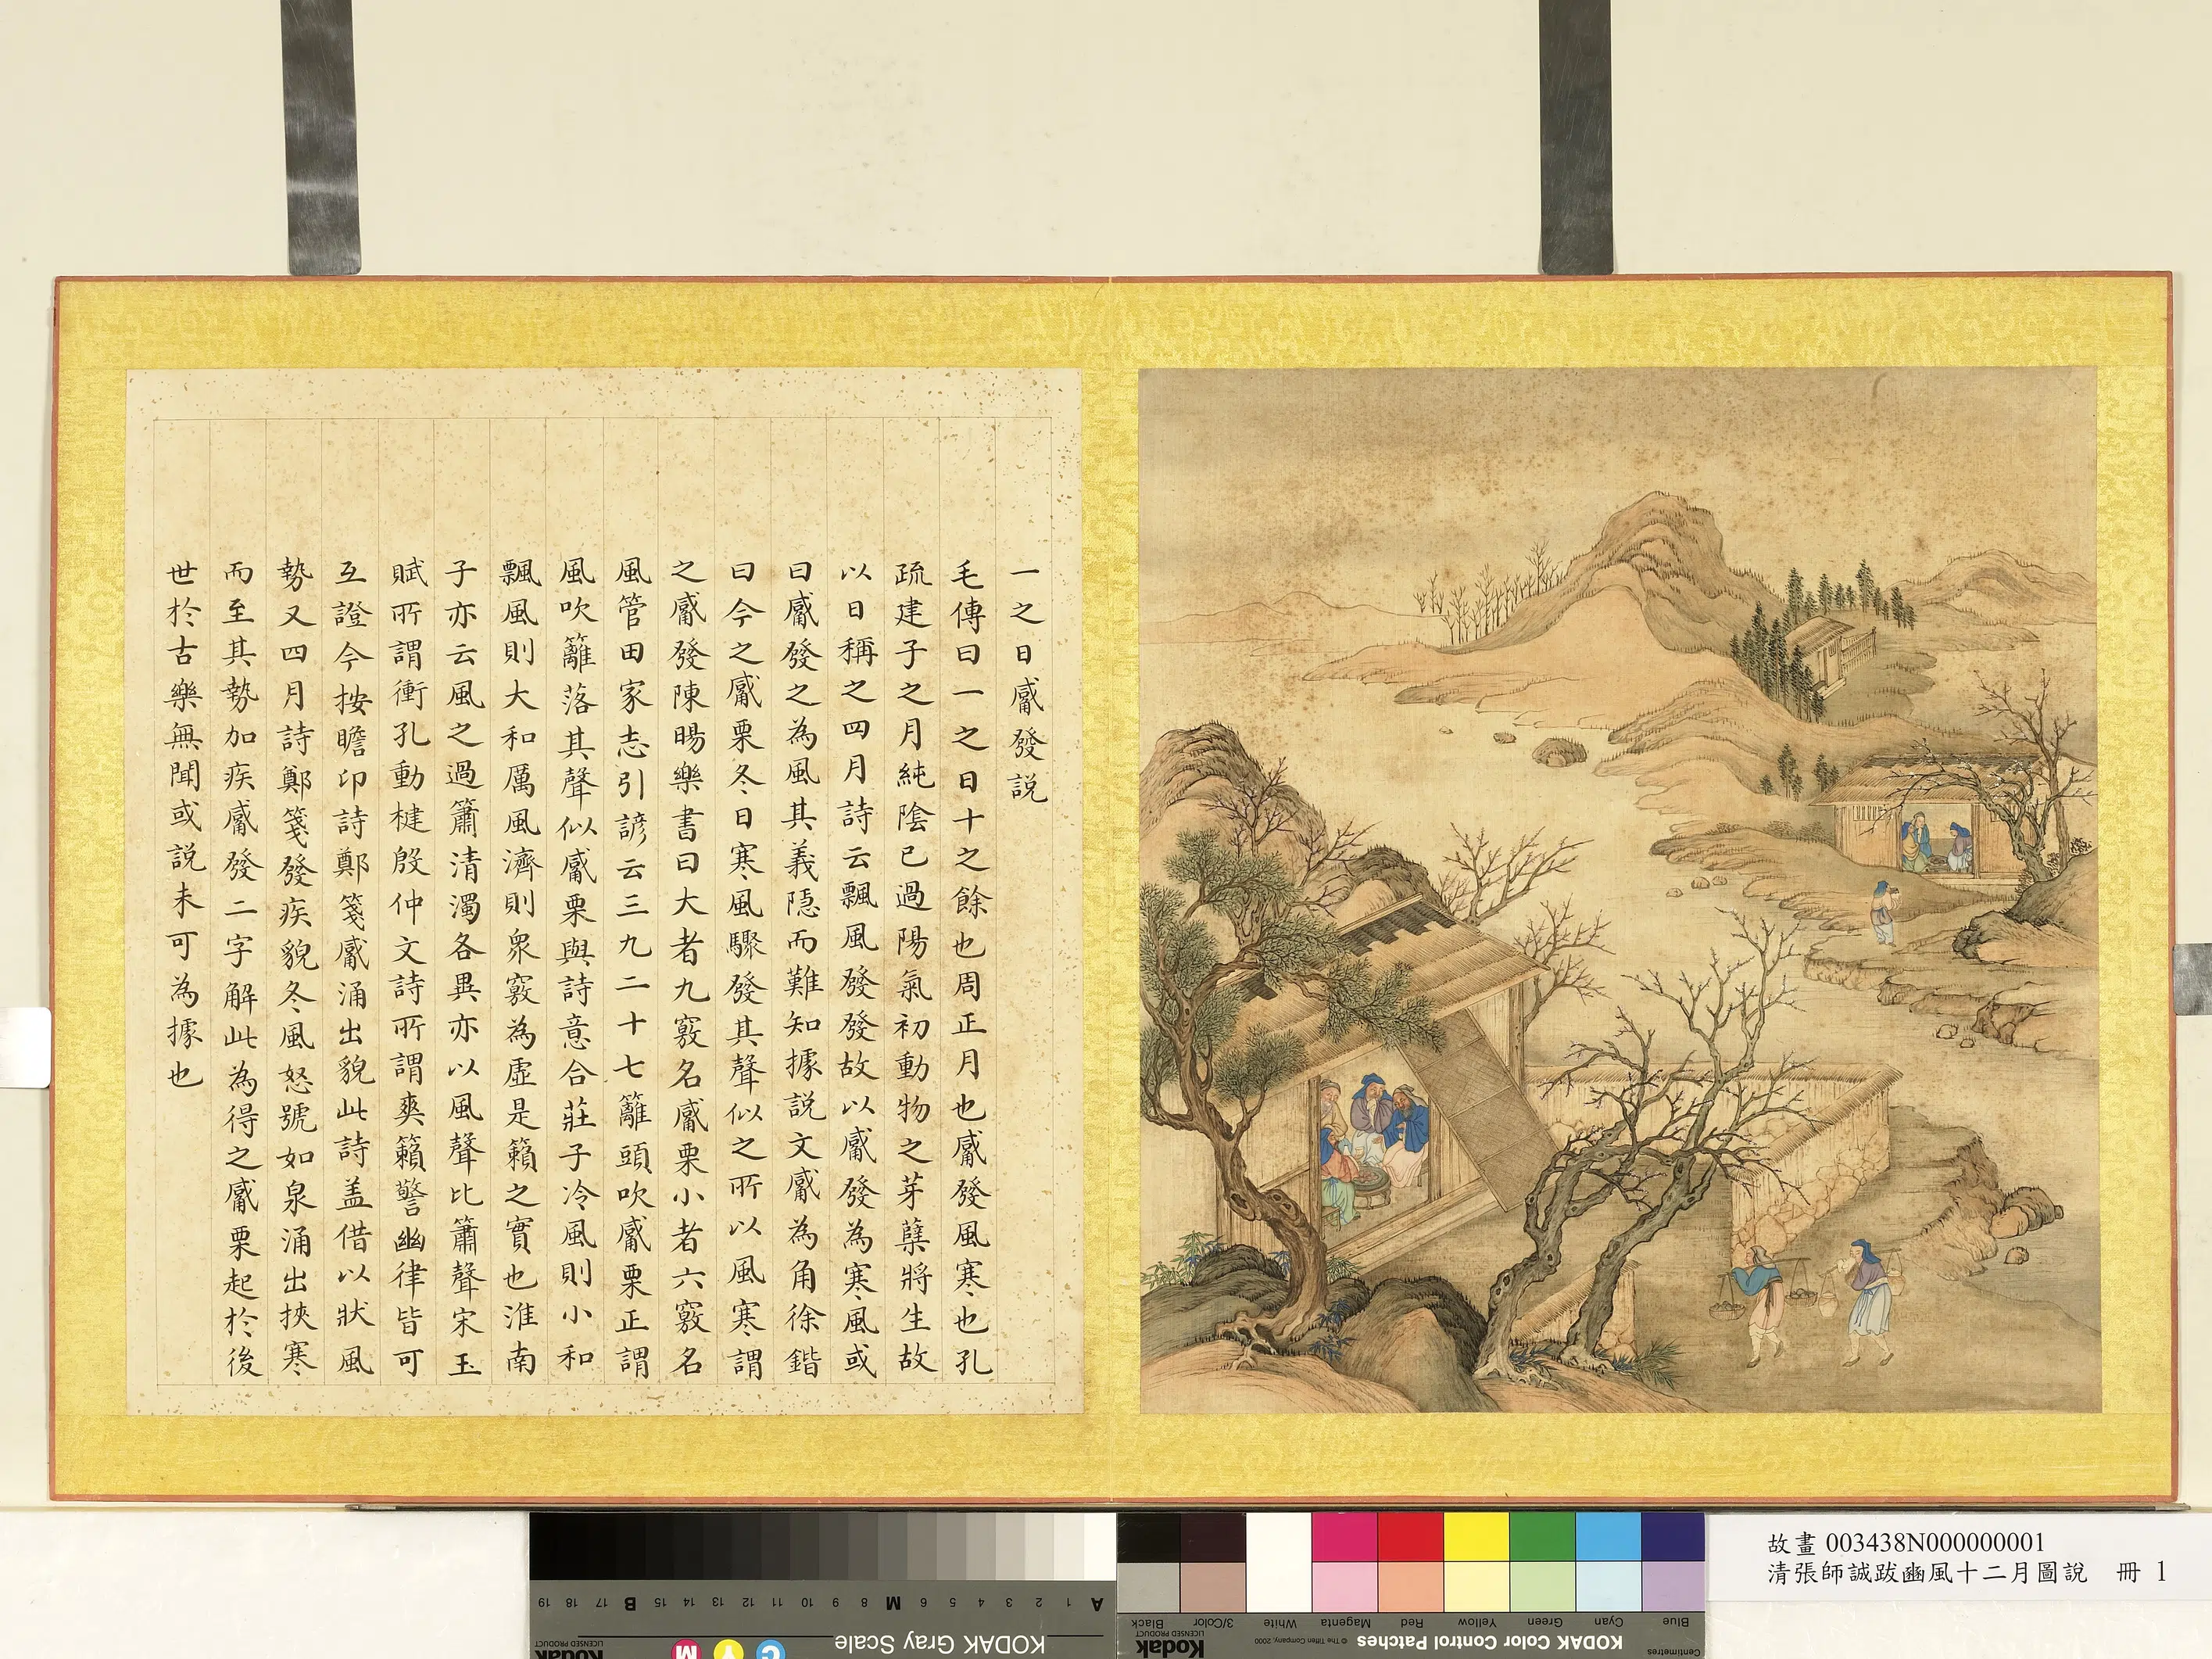 一之日觱發説
毛傳曰一之日十之餘也周正月也觱發風寒也孔
疏建子之月純陰已過陽氣初動物之芽蘖將生故
以日稱之四月詩云飄風發發故以觱發為寒風或
曰觱發之為風其義隱而難知據説文觱為角徐鍇
曰今之觱栗冬日寒風驟發其聲似之所以風寒謂
之觱發陳暘樂書曰大者九竅名觱栗小者六竅名
風管田家志引諺云三九二十七籬頭吹觱栗正謂
風吹籬落其聲似觱栗與詩意合莊子冷風則小和
飄風則大和厲風濟則衆竅為虛是籟之實也淮南
子亦云風之過簫清濁各異亦以風聲比簫聲宋玉
賦所謂衝孔動楗殷仲文詩所謂爽籟警幽律皆可
互證今按瞻卬詩鄭箋觱涌出貌此詩盖借以狀風
勢又四月詩鄭箋發疾貌冬風怒號如泉涌出挾寒
而至其勢加疾觱發二字解此為得之觱栗起於後
世於古樂無聞或説未可為據也
故畫 003438N000000001
清張師誠跋豳風十二月圖說 冊 1
A 1 2 3 4 5 6 M 8 9 10 11 12 13 14 15 B 17 18 19
KODAK Gray Scale
C Y M
Kodak
LICENSED PRODUCT
Centimetres
Blue Cyan Green Yellow Red Magenta White 3/Color Black
KODAK Color Control Patches
© The Tiffen Company, 2000
Kodak
LICENSED PRODUCT